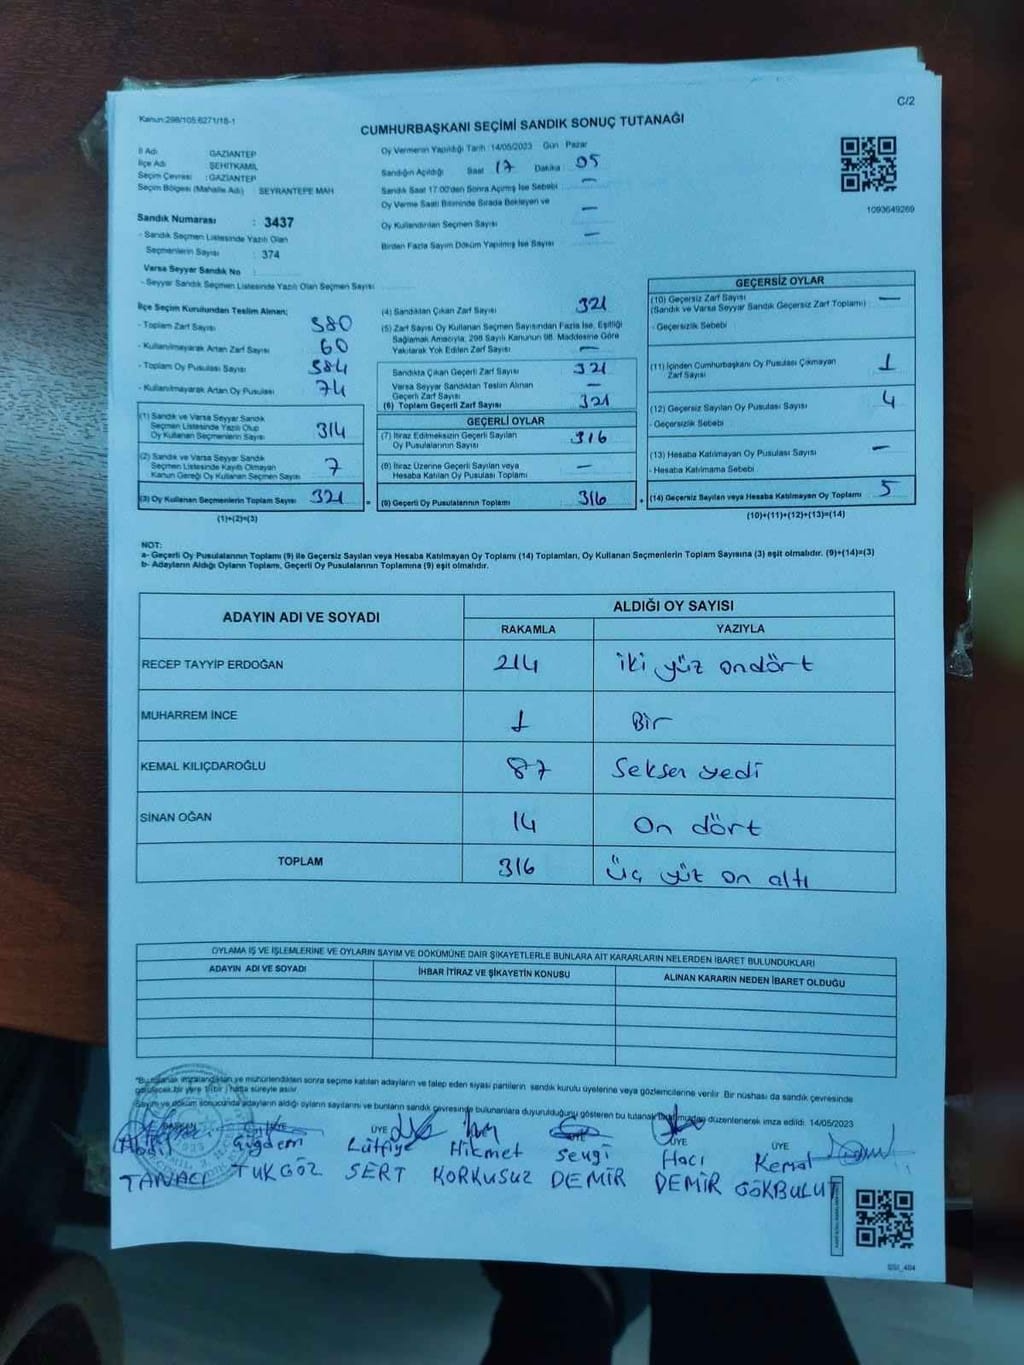 C/2
Kanun:298/105:6271/18-1
CUMHURBAŞKANI SEÇİMİ SANDIK SONUÇ TUTANAĞI
İl Adı : GAZİANTEP
İlçe Adı : ŞEHİTKAMİL
Seçim Çevresi : GAZİANTEP
Seçim Bölgesi (Mahalle Adı) : SEYRANTEPE MAH
Sandık Numarası : 3437
- Sandık Seçmen Listesinde Yazılı Olan
Seçmenlerin Sayısı : 374
Varsa Seyyar Sandık No :
- Seyyar Sandık Seçmen Listesinde Yazılı Olan Seçmen Sayısı
Oy Vermenin Yapıldığı Tarih :14/05/2023 Gün Pazar
Sandığın Açıldığı Saat 17 Dakika : 05
Sandık Saat 17:00'den Sonra Açılmış İse Sebebi : —
Oy Verme Saati Bitiminde Sırada Bekleyen ve
Oy Kullandırılan Seçmen Sayısı —
Birden Fazla Sayım Döküm Yapılmış İse Sayısı —
1093649269
İlçe Seçim Kurulundan Teslim Alınan;
- Toplam Zarf Sayısı 380
- Kullanılmayarak Artan Zarf Sayısı 60
- Toplam Oy Pusulası Sayısı 384
- Kullanılmayarak Artan Oy Pusulası 74
(1) Sandık ve Varsa Seyyar Sandık
Seçmen Listesinde Yazılı Olup
Oy Kullanan Seçmenlerin Sayısı 314
(2) Sandık ve Varsa Seyyar Sandık
Seçmen Listesinde Kayıtlı Olmayan
Kanun Gereği Oy Kullanan Seçmen Sayısı 7
(3) Oy Kullanan Seçmenlerin Toplam Sayısı 321 =
(1)+(2)=(3)
(4) Sandıktan Çıkan Zarf Sayısı 321
(5) Zarf Sayısı Oy Kullanan Seçmen Sayısından Fazla İse, Eşitliği
Sağlamak Amacıyla, 298 Sayılı Kanunun 98. Maddesine Göre
Yakılarak Yok Edilen Zarf Sayısı —
Sandıkta Çıkan Geçerli Zarf Sayısı 321
Varsa Seyyar Sandıktan Teslim Alınan
Geçerli Zarf Sayısı —
(6) Toplam Geçerli Zarf Sayısı 321
GEÇERLİ OYLAR
(7) İtiraz Edilmeksizin Geçerli Sayılan
Oy Pusulalarının Sayısı 316
(8) İtiraz Üzerine Geçerli Sayılan veya
Hesaba Katılan Oy Pusulası Toplamı —
(9) Geçerli Oy Pusulalarının Toplamı 316 +
GEÇERSİZ OYLAR
(10) Geçersiz Zarf Sayısı —
(Sandık ve Varsa Seyyar Sandık Geçersiz Zarf Toplamı)
- Geçersizlik Sebebi
(11) İçinden Cumhurbaşkanı Oy Pusulası Çıkmayan
Zarf Sayısı 1
(12) Geçersiz Sayılan Oy Pusulası Sayısı 4
- Geçersizlik Sebebi
(13) Hesaba Katılmayan Oy Pusulası Sayısı —
- Hesaba Katılmama Sebebi
(14) Geçersiz Sayılan veya Hesaba Katılmayan Oy Toplamı 5
(10)+(11)+(12)+(13)=(14)
NOT:
a- Geçerli Oy Pusulalarının Toplamı (9) ile Geçersiz Sayılan veya Hesaba Katılmayan Oy Toplamı (14) Toplamları, Oy Kullanan Seçmenlerin Toplam Sayısına (3) eşit olmalıdır. (9)+(14)=(3)
b- Adayların Aldığı Oyların Toplamı, Geçerli Oy Pusulalarının Toplamına (9) eşit olmalıdır.
ADAYIN ADI VE SOYADI ALDIĞI OY SAYISI
RAKAMLA YAZIYLA
RECEP TAYYİP ERDOĞAN 214 iki yüz ondört
MUHARREM İNCE 1 Bir
KEMAL KILIÇDAROĞLU 87 Seksen yedi
SİNAN OĞAN 14 On dört
TOPLAM 316 Üç yüz on altı
OYLAMA İŞ VE İŞLEMLERİNE VE OYLARIN SAYIM VE DÖKÜMÜNE DAİR ŞİKAYETLERLE BUNLARA AİT KARARLARIN NELERDEN İBARET BULUNDUKLARI
ADAYIN ADI VE SOYADI İHBAR İTİRAZ VE ŞİKAYETİN KONUSU ALINAN KARARIN NEDEN İBARET OLDUĞU
*Bu tutanak imzalandıktan ve mühürlendikten sonra seçime katılan adayların ve talep eden siyasi partilerin sandık kurulu üyelerine veya gözlemcilerine verilir. Bir nüshası da sandık çevresinde
görülecek bir yere 1(bir) hafta süreyle asılır.
Sayım ve döküm sonucunda adayların aldığı oyların sayılarını ve bunların sandık çevresinde bulunanlara duyurulduğunu gösteren bu tutanak tarafımızdan düzenlenerek imza edildi. 14/05/2023
BAŞKAN ÜYE ÜYE ÜYE ÜYE
Çiğdem Lütfiye Hikmet Sevgi Hacı Kemal
TANACI TUKGÖZ SERT KORKUSUZ DEMİR DEMİR GÖKBULUT
SSI_404